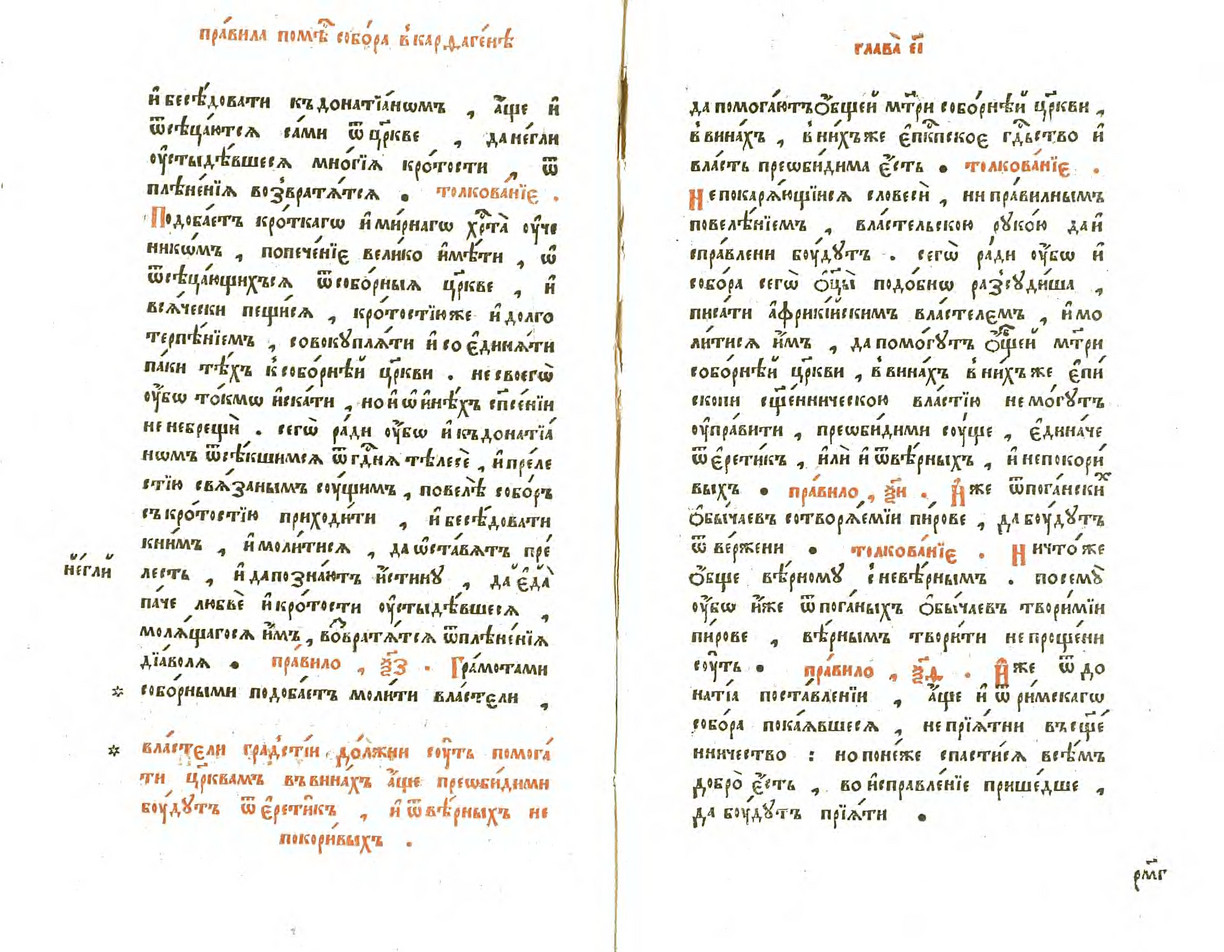 пра́вила помѣ́ⷭ҇ собо́ра в̾карѳаге́нѣ
и҆ бесѣ́довати къ донатїа́нѡмъ , а҆́ще и҆
ѿсѣца́ютсѧ са́ми ѿ цр҃кве , да не́гли
ᲂу҆стыдѣ́вшесѧ мно́гїѧ кро́тости , ѿ
плѣне́нїѧ возвратѧ́тсѧ . толкова́нїе .
Подоба́етъ кро́ткагѡ и҆ ми́рнагѡ хрⷭ҇та̀ ᲂу҆че
никѡ́мъ , попече́нїе вели́ко и҆мѣ́ти , ѡ҆
ѿсѣца́ющихъсѧ ѿ собо́рныѧ цр҃кве , и҆
всѧ́чески пещи́сѧ , кро́тостїюже и҆ долго
терпѣ́нїемъ , совокуплѧ́ти и҆ со є҆динѧ́ти
па́ки тѣ́хъ к̾ собо́рнѣй цр҃кви . не своегѡ̀
ᲂу҆́бѡ то́кмѡ и҆ска́ти , но и҆ ѡ҆ и҆нѣ́хъ спⷭ҇енїи
не небрещѝ . сегѡ̀ ра́ди ᲂу҆́бѡ и҆ къ донатїа́
нѡмъ ѿсѣ́кшимсѧ ѿ гдⷭ҇нѧ тѣлесѐ , и҆ пре́ле
стїю свѧ́занымъ сꙋ́щимъ , повелѣ̀ собо́ръ
съ кро́тостїю приходи́ти , и҆ бесѣ́довати
к̾ни́мъ , и҆ моли́тисѧ , да ѡ҆ста́вѧтъ пре́
лесть , и҆ да позна́ютъ и҆́стину , да є҆да̀
па́че любвѐ и҆ кро́тости ᲂу҆стыдѣ́вшесѧ ,
молѧ́щагосѧ и҆́мъ , возвратѧ́тсѧ ѿ плѣне́нїѧ
дїа́волѧ . пра́вило , ѯ҃з . Гра́мотами
* собо́рными подоба́етъ моли́ти вла́стели ,
и҆́ не́гли и҆
* вла́стели гра́дстїи до́лжни сꙋ́ть помога́
ти цр҃квамъ въ вина́хъ а҆́ще преѡби́дими
бꙋ́дꙋтъ ѿ є҆рети̑къ , и҆ ѿ вѣ́рныхъ не
покори́выхъ .
глава̀ е҃і
да помога́ютъ ѻ҆́бщей мт҃ри собо́рнѣй цр҃кви ,
в̾ вина́хъ , в̾ ни́хъже є҆пкⷭ҇пское гдⷭ҇ьство и҆
вла́сть преѡби́дима є҆́сть . толкова́нїе .
Не покарѧ́ющїисѧ словесѝ , ни пра́вилнымъ
повелѣ́нїемъ , вла́стельскою рꙋко́ю да и҆
спра́влени бꙋ́дꙋтъ . сегѡ̀ ра́ди ᲂу҆́бѡ и҆
собо́ра сегѡ̀ ѻ҆ц҃ы̀ подо́бнѡ разсꙋди́ша ,
писа́ти а҆фрикі́йскимъ власте́лемъ , и҆ мо
ли́тисѧ и҆́мъ , да помо́гꙋтъ ѻ҆́бщей мт҃ри
собо́рнѣй цр҃кви , в̾ вина́хъ в̾ ни́хъже є҆пи́
скопи сщ҃е́нническою вла́стїю не мо́гꙋтъ
ᲂу҆пра́вити , преѡби́дими сꙋ́ще , є҆дина́че
ѿ є҆рети̑къ , и҆лѝ и҆ ѿ вѣ́рныхъ , и҆ непокори́
выхъ . пра́вило , ѯ҃и . И҆̀же ѿ пога́нскихъ
ѻ҆бы́чаевъ сотворѧ́емїи пи́рове , да бꙋ́дꙋтъ
ѿ ве́ржени . толкова́нїе . Ничто́же
ѻ҆́бще вѣ́рному с̾ невѣ́рнымъ . посемꙋ̀
ᲂу҆́бѡ и҆́же ѿ пога́ныхъ ѻ҆бы́чаевъ твори́мїи
пи́рове , вѣ́рнымъ твори́ти не проще́ни
сꙋ́ть . пра́вило , ѯ҃ѳ . И҆̀же ѿ до
на́тїа поста́вленїи , а҆́ще и҆ ѿ ри́мскагѡ
собо́ра пока́ѧвшесѧ , не прїѧ́тни въ сщ҃е́
нничество : но поне́же спасти́сѧ всѣ́мъ
добро̀ є҆́сть , во и҆справле́нїе прише́дше ,
да бꙋ́дꙋтъ прїѧ́ти .
рм҃г